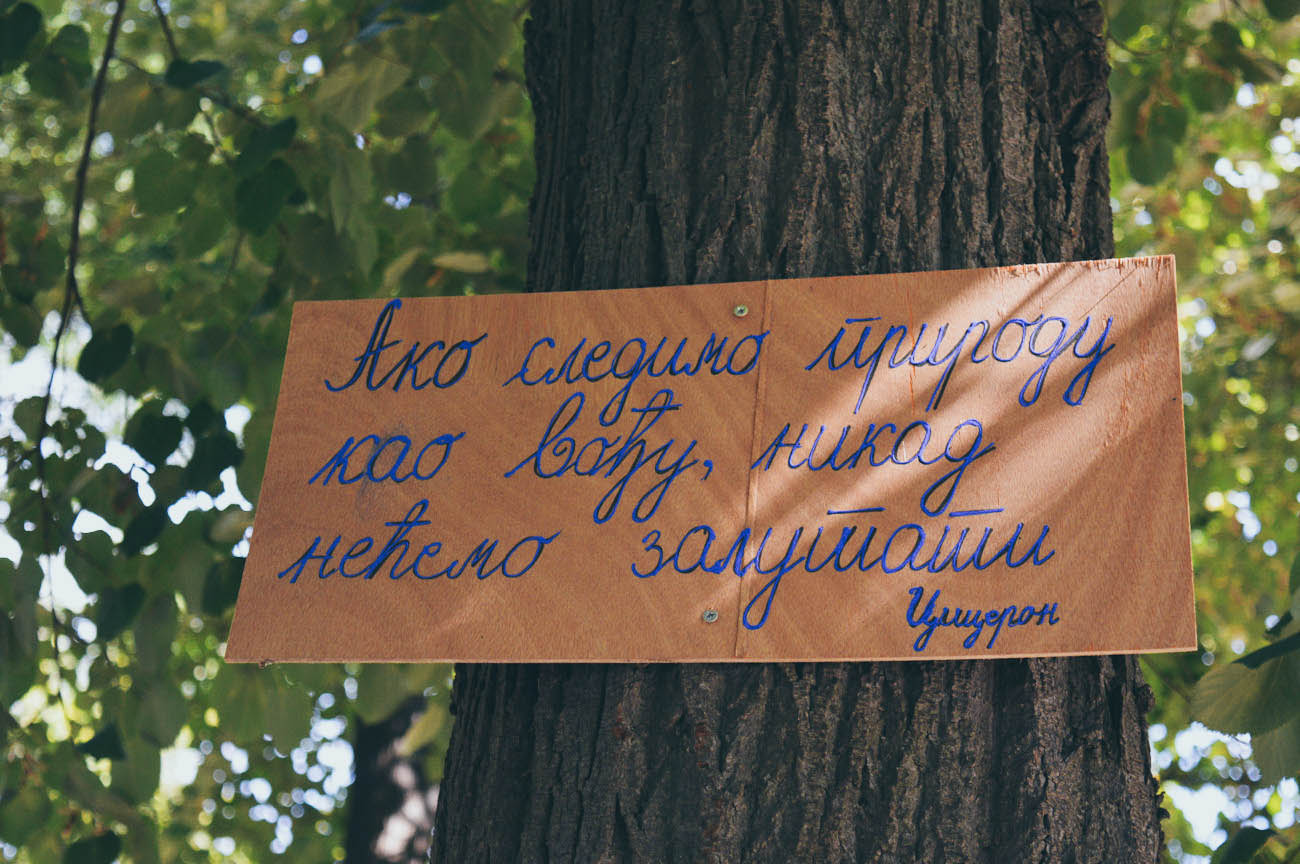 Ако следимо природу
као вођу, никад
нећемо залутати
Цицерон